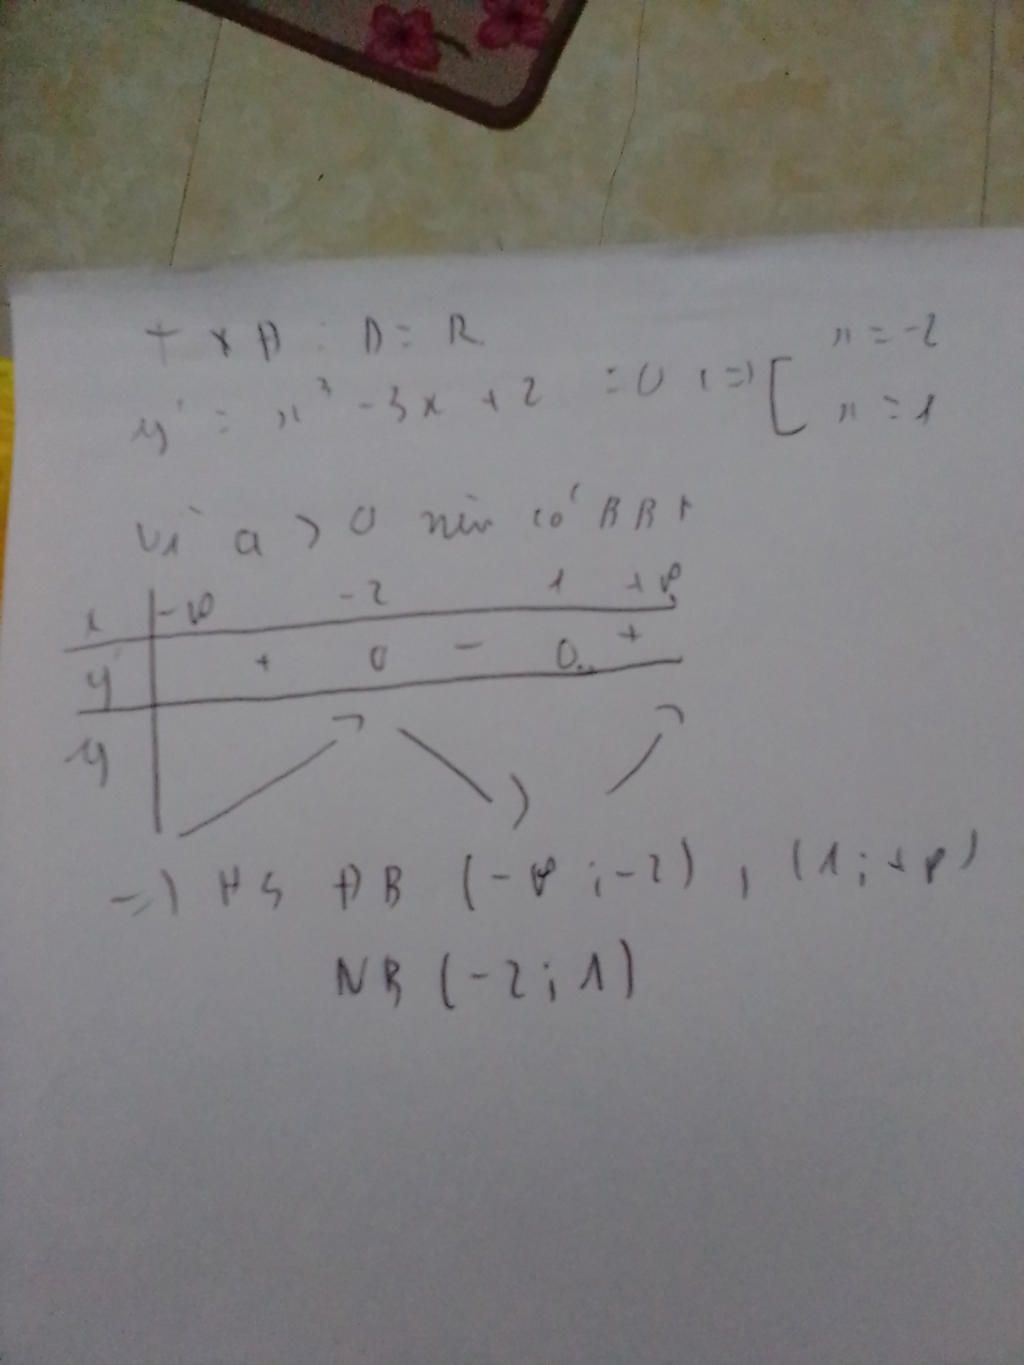 TXĐ : D = R
y' = x³ - 3x + 2 = 0 <=> [ x = -2
x = 1
Vì a > 0 nên có BBT
x -∞ -2 1 +∞
y' + 0 - 0 +
y
=> HS ĐB (-∞ ; -2) , (1 ; +∞)
NB (-2 ; 1)